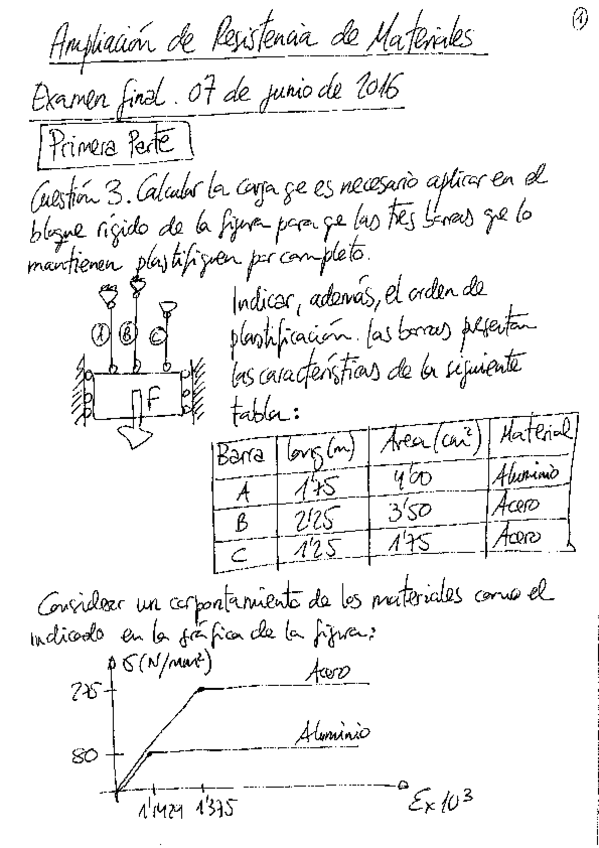 1
Ampliación de Resistencia de Materiales
Examen final. 07 de junio de 2016
Primera Parte
Cuestión 3. Calcular la carga qe es necesario aplicar en el
bloque rígido de la figura para qe las tres barras qe lo
mantienen plastifiquen por completo.
Indicar, además, el orden de
plastificación. Las barras presentan
las características de la siguiente
tabla:
A B C
F
Barra Long (m) Área (cm²) Material
A 1'75 4'00 Aluminio
B 2'25 3'50 Acero
C 1'25 1'75 Acero
Considerar un comportamiento de los materiales como el
indicado en la gráfica de la figura:
σ (N/mm²)
Acero
275
Aluminio
80
1'1429 1'375
Ex10³